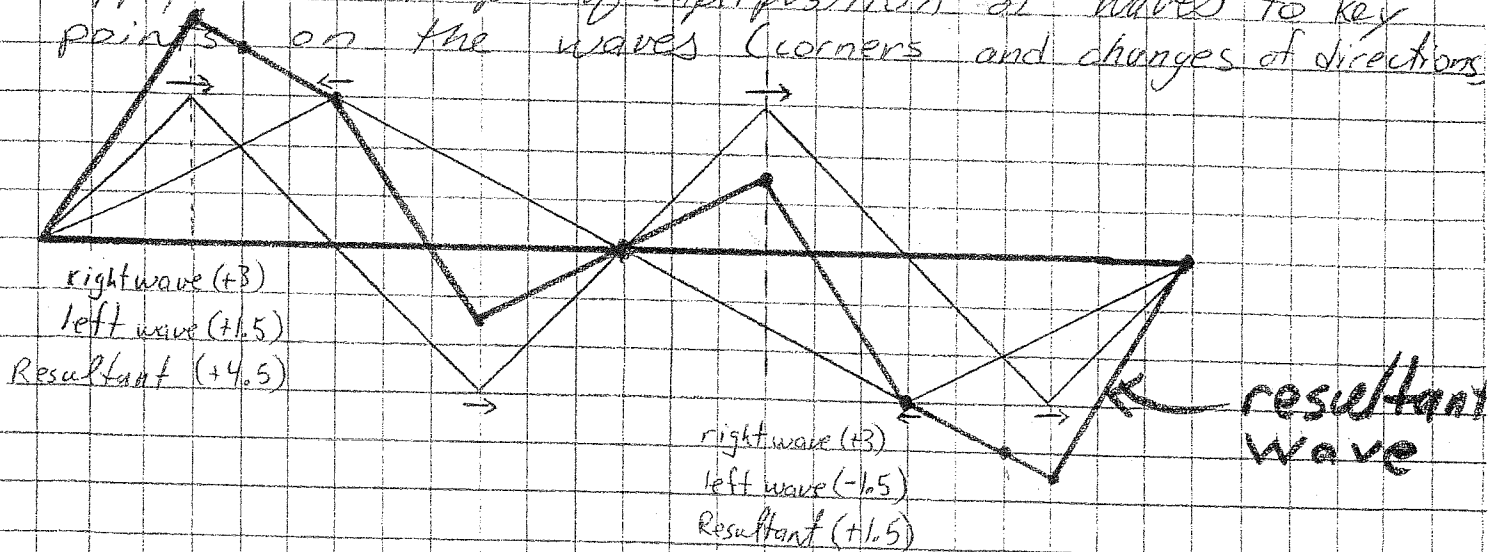 of superposition of waves to key
points on the waves (corners and changes of directions
rightwave (+3)
left wave (+1.5)
Resultant (+4.5)
rightwave (+3)
left wave (-1.5)
Resultant (+1.5)
resultant
wave